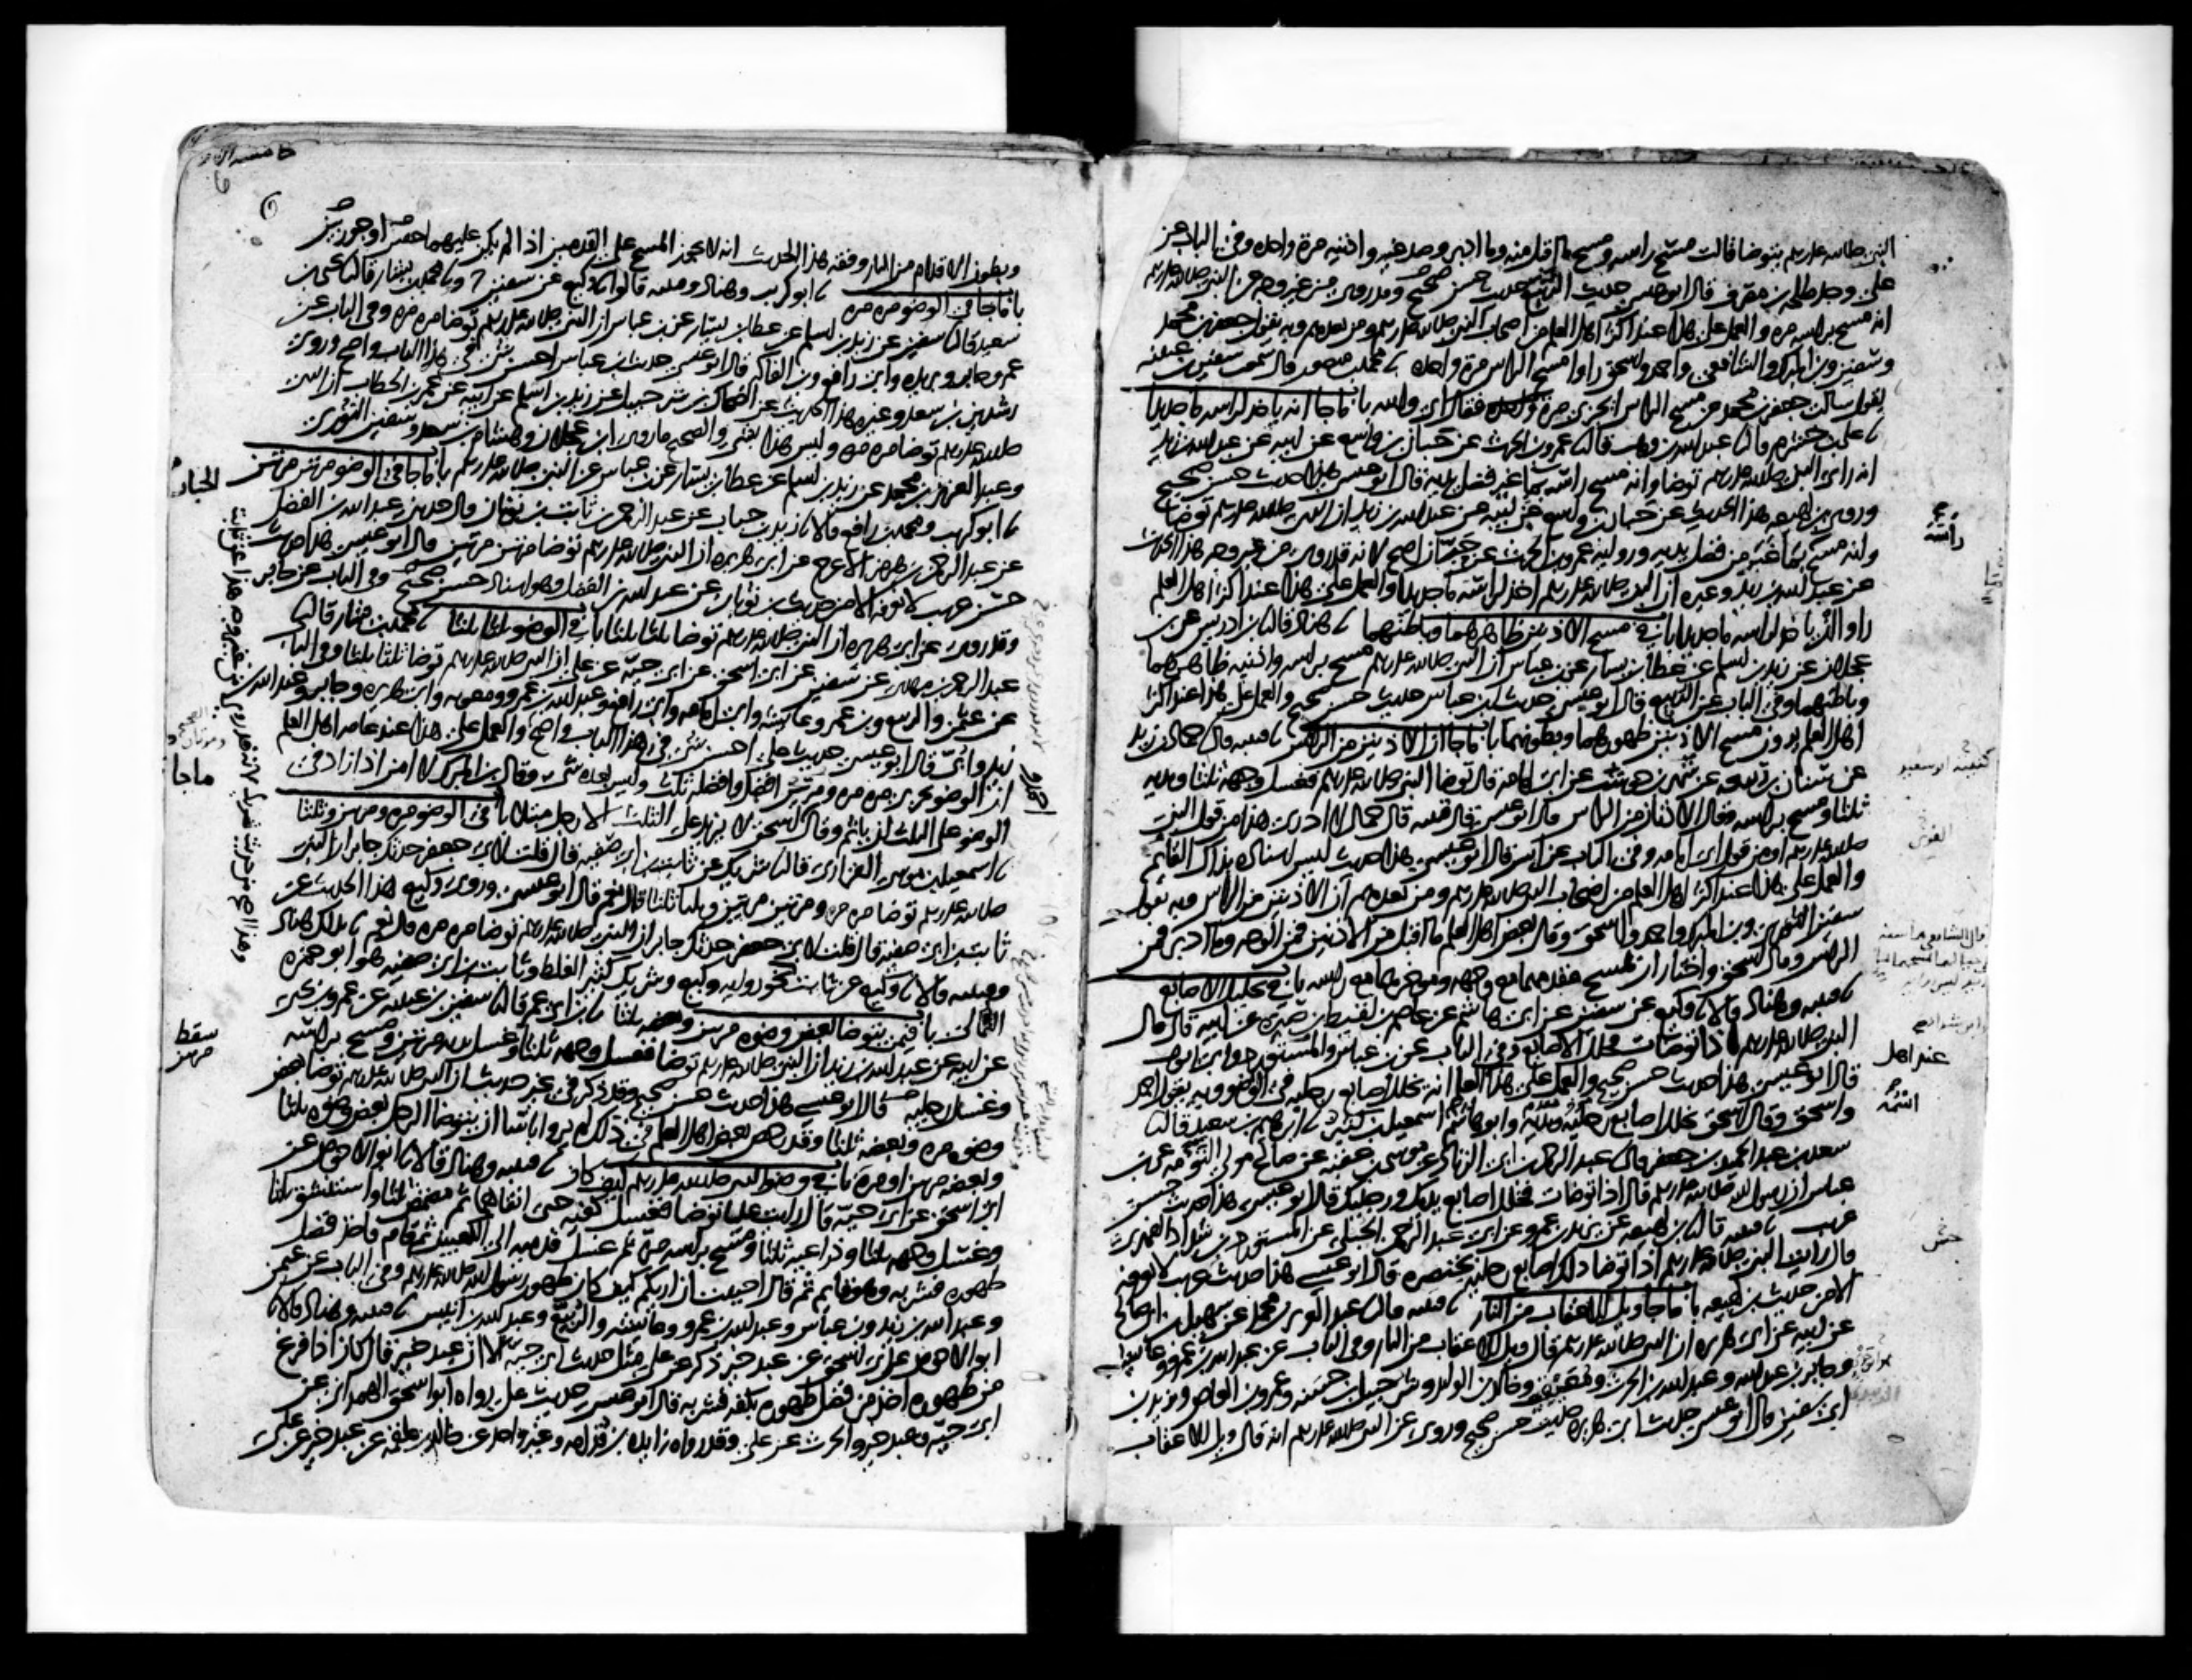 النبي صلى الله عليه وسلم يتوضا قالت مسح راسه ومسح ما اقبل منه وما ادبر وصدغيه واذنيه مرة واحده وفي الباب عن
علي وجد طلحه بن مصرف قال ابو عيسى حديث الربيع حديث حسن صحيح وقد روي من غير وجه عن النبي صلى الله عليه وسلم
انه مسح براسه مره والعمل على هذا عند اكثر اهل العلم من اصحاب النبي صلى الله عليه وسلم ومن بعدهم وبه يقول جعفر بن محمد
وسفين وبن المبرك والشافعي واحمد واسحق راوا مسح الراس مرة واحده محمد بن منصور قال سمعت سفين بن عيينه
يقول سالت جعفر بن محمد عن مسح الراس ايجزئ مرة فقال اي والله باب ما جا انه ياخذ لراسه ما جديدا
علي بن خشرم قال عبد الله بن وهب قال عمرو بن الحرث عن حبان بن واسع عن ابيه عن عبد الله بن زيد
انه راى النبي صلى الله عليه وسلم توضا وانه مسح راسه بما غير فضل يديه قال ابو عيسى هذا حديث حسن صحيح
وروى بن لهيعه هذا الحديث عن حبان بن واسع عن ابيه عن عبد الله بن زيد ان النبي صلى الله عليه وسلم توضا
وانه مسح بما غبر من فضل يديه ورواية عمرو بن الحرث عن حبان اصح لانه قد روي من غير وجه هذا الحديث
عن عبد الله بن زيد وغيره ان النبي صلى الله عليه وسلم اخذ لراسه ما جديدا والعمل على هذا عند اكثر اهل العلم
راوا ان ياخذ لراسه ما جديدا باب في مسح الاذنين ظاهرهما وباطنهما هناد قال بن ادريس عن بن
عجلان عن زيد بن اسلم عن عطا بن يسار عن بن عباس ان النبي صلى الله عليه وسلم مسح براسه واذنيه ظاهرهما
وباطنهما وفي الباب عن الربيع قال ابو عيسى حديث ابن عباس حديث حسن صحيح والعمل على هذا عند اكثر
اهل العلم يرون مسح الاذنين ظهورهما وبطونهما باب ما جا ان الاذنين من الراس قتيبه قال حماد بن زيد
عن سنان بن ربيعه عن شهر بن حوشب عن ابي امامة قال توضا النبي صلى الله عليه وسلم فغسل وجهه ثلثا ويديه
ثلثا ومسح براسه وقال الاذنان من الراس قال ابو عيسى قال قتيبه قال حماد لا ادري هذا من قول النبي
صلى الله عليه وسلم او من قول ابي امامه وفي الباب عن انس قال ابو عيسى هذا حديث ليس اسناده بذاك القائم
والعمل على هذا عند اكثر اهل العلم من اصحاب النبي صلى الله عليه وسلم ومن بعدهم ان الاذنين من الراس وبه يقول
سفين الثوري وبن المبرك واحمد واسحق وقال بعض اهل العلم ما اقبل من الاذنين فمن الوجه وما ادبر فمن
الراس وقال اسحق واختار ان يمسح مقدمهما مع وجهه وموخرهما مع راسه باب في تخليل الاصابع
قتيبه وهناد قالا وكيع عن سفين عن ابي هاشم عن عاصم بن لقيط بن صبره عن ابيه قال قال
النبي صلى الله عليه وسلم اذا توضات فخلل الاصابع وفي الباب عن بن عباس والمستورد وابي ايوب
قال ابو عيسى هذا حديث حسن صحيح والعمل على هذا انه يخلل اصابع رجليه في الوضو وبه يقول احمد
واسحق وقال اسحق يخلل اصابع رجليه ويديه وابو هاشم اسمعيل بن كثير ابرهيم بن سعيد قال
سعد بن عبد الحميد بن جعفر قال عبد الرحمن ابن ابي الزناد عن موسى بن عقبه عن صالح مولى التومه عن بن
عباس ان رسول الله صلى الله عليه وسلم قال اذا توضات فخلل اصابع يديك ورجليك قال ابو عيسى هذا حديث حسن
غريب قتيبه قال بن لهيعه عن يزيد بن عمرو عن ابي عبد الرحمن الحبلي عن المستورد بن شداد الفهري
قال رايت النبي صلى الله عليه وسلم اذا توضا دلك اصابع رجليه بخنصره قال ابو عيسى هذا حديث غريب لا نعرفه
الا من حديث بن لهيعه باب ما جا ويل للاعقاب من النار قتيبه قال عبد العزيز بن محمد عن سهيل بن ابي صالح
عن ابيه عن ابي هريره ان النبي صلى الله عليه وسلم قال ويل للاعقاب من النار وفي الباب عن عبد الله بن عمرو وعايشه
وجابر بن عبد الله وعبد الله بن الحرث ومعيقيب وخالد بن الوليد وشرحبيل بن حسنه وعمرو بن العاص ويزيد بن
ابي سفين قال ابو عيسى حديث ابي هريره حديث حسن صحيح وروي عن النبي صلى الله عليه وسلم انه قال ويل للاعقاب
راسه
عند اهل
وبطون الاقدام من النار وفقه هذا الحديث انه لا يجوز المسح على القدمين اذا لم يكن عليهما خفين او جوربين
باب ما جا في الوضو مره مره ابو كريب وهناد وقتيبه قالوا وكيع عن سفين ح ومحمد بن بشار قال يحيى بن
سعيد قال سفين عن زيد بن اسلم عن عطا بن يسار عن بن عباس ان النبي صلى الله عليه وسلم توضا مره مره وفي الباب عن
عمر وجابر وبريده وابي رافع وبن الفاكه قال ابو عيسى حديث بن عباس احسن شي في هذا الباب واصح وروى
رشدين بن سعد وغيره هذا الحديث عن الضحاك بن شرحبيل عن زيد بن اسلم عن ابيه عن عمر بن الخطاب ان النبي
صلى الله عليه وسلم توضا مره مره وليس هذا بشي والصحيح ما روى ابن عجلان وهشام بن سعد وسفين الثوري
وعبد العزيز بن محمد عن زيد بن اسلم عن عطا بن يسار عن بن عباس عن النبي صلى الله عليه وسلم باب ما جا في الوضو مرتين مرتين
ابو كريب ومحمد بن رافع قالا زيد بن حباب عن عبد الرحمن بن ثابت بن ثوبان قال حدثني عبد الله بن الفضل
عن عبد الرحمن بن هرمز الاعرج عن ابي هريره ان النبي صلى الله عليه وسلم توضا مرتين مرتين قال ابو عيسى هذا حديث
حسن غريب لا نعرفه الا من حديث بن ثوبان عن عبد الله بن الفضل وهو اسناد حسن صحيح وفي الباب عن جابر
وقد روي عن ابي هريره ان النبي صلى الله عليه وسلم توضا ثلثا ثلثا باب في الوضو ثلثا ثلثا محمد بن بشار قال
عبد الرحمن بن مهدي عن سفين عن ابي اسحق عن ابي حيه عن علي ان النبي صلى الله عليه وسلم توضا ثلثا ثلثا وفي الباب
عن عثمن والربيع وبن عمر وعايشه وابي امامه وابي رافع وعبد الله بن عمرو ومعويه وابي هريره وجابر وعبد الله بن
زيد وابي قال ابو عيسى حديث علي احسن شي في هذا الباب واصح والعمل على هذا عند عامه اهل العلم
ان الوضو يجزئ مره مره ومرتين افضل وافضله ثلث وليس بعده شي وقال بن المبرك لا امن اذا زاد في
الوضو على الثلث ان ياثم وقال احمد واسحق لا يزيد على الثلث الا رجل مبتلى باب في الوضو مره ومرتين وثلثا
اسمعيل بن موسى الفزاري قال شريك عن ثابت بن ابي صفيه قال قلت لابي جعفر حدثك جابر ان النبي
صلى الله عليه وسلم توضا مره مره ومرتين مرتين وثلثا ثلثا قال نعم قال ابو عيسى وروى وكيع هذا الحديث عن
ثابت بن ابي صفيه قال قلت لابي جعفر حدثك جابر ان النبي صلى الله عليه وسلم توضا مره مره قال نعم بذلك هناد
وقتيبه قالا وكيع عن ثابت نحو رواية وكيع وشريك كثير الغلط وثابت بن ابي صفيه هو ابو حمزه
الثمالي باب فيمن يتوضا بعض وضوه مرتين وبعضه ثلثا بن ابي عمر قال سفين بن عيينه عن عمرو بن يحيى
عن ابيه عن عبد الله بن زيد ان النبي صلى الله عليه وسلم توضا فغسل وجهه ثلثا وغسل يديه مرتين ومسح براسه
وغسل رجليه قال ابو عيسى هذا حديث حسن صحيح وقد ذكر في غير حديث ان النبي صلى الله عليه وسلم توضا بعض
وضوه مره وبعضه ثلثا وقد رخص بعض اهل العلم في ذلك لم يروا باسا ان يتوضا الرجل بعض وضوه ثلثا
وبعضه مرتين او مره باب في وضو النبي صلى الله عليه وسلم كيف كان قتيبه وهناد قالا ابو الاحوص عن
ابي اسحق عن ابي حيه قال رايت عليا توضا فغسل كفيه حتى انقاهما ثم مضمض ثلثا واستنشق ثلثا
وغسل وجهه ثلثا وذراعيه ثلثا ومسح براسه مرة ثم غسل قدميه الى الكعبين ثم قام فاخذ فضل
طهوره فشربه وهو قايم ثم قال احببت ان اريكم كيف كان طهور رسول الله صلى الله عليه وسلم وفي الباب عن عثمن
وعبد الله بن زيد وبن عباس وعبد الله بن عمرو وعايشه والربيع وعبد الله بن انيس قتيبه وهناد قالا
ابو الاحوص عن ابي اسحق عن عبد خير ذكر عن علي مثل حديث ابي حيه الا ان عبد خير قال كان اذا فرغ
من طهوره اخذ من فضل طهوره بكفه فشربه قال ابو عيسى حديث علي رواه ابو اسحق الهمداني عن
ابي حيه وعبد خير والحرث عن علي وقد رواه زايده بن قدامه وغير واحد عن خالد بن علقمه عن عبد خير عن علي
الحباب
ماجا
سقط
مرتين
وهذا اصح من حديث شريك لانه قد روي من غير وجه هذا عن ثابت